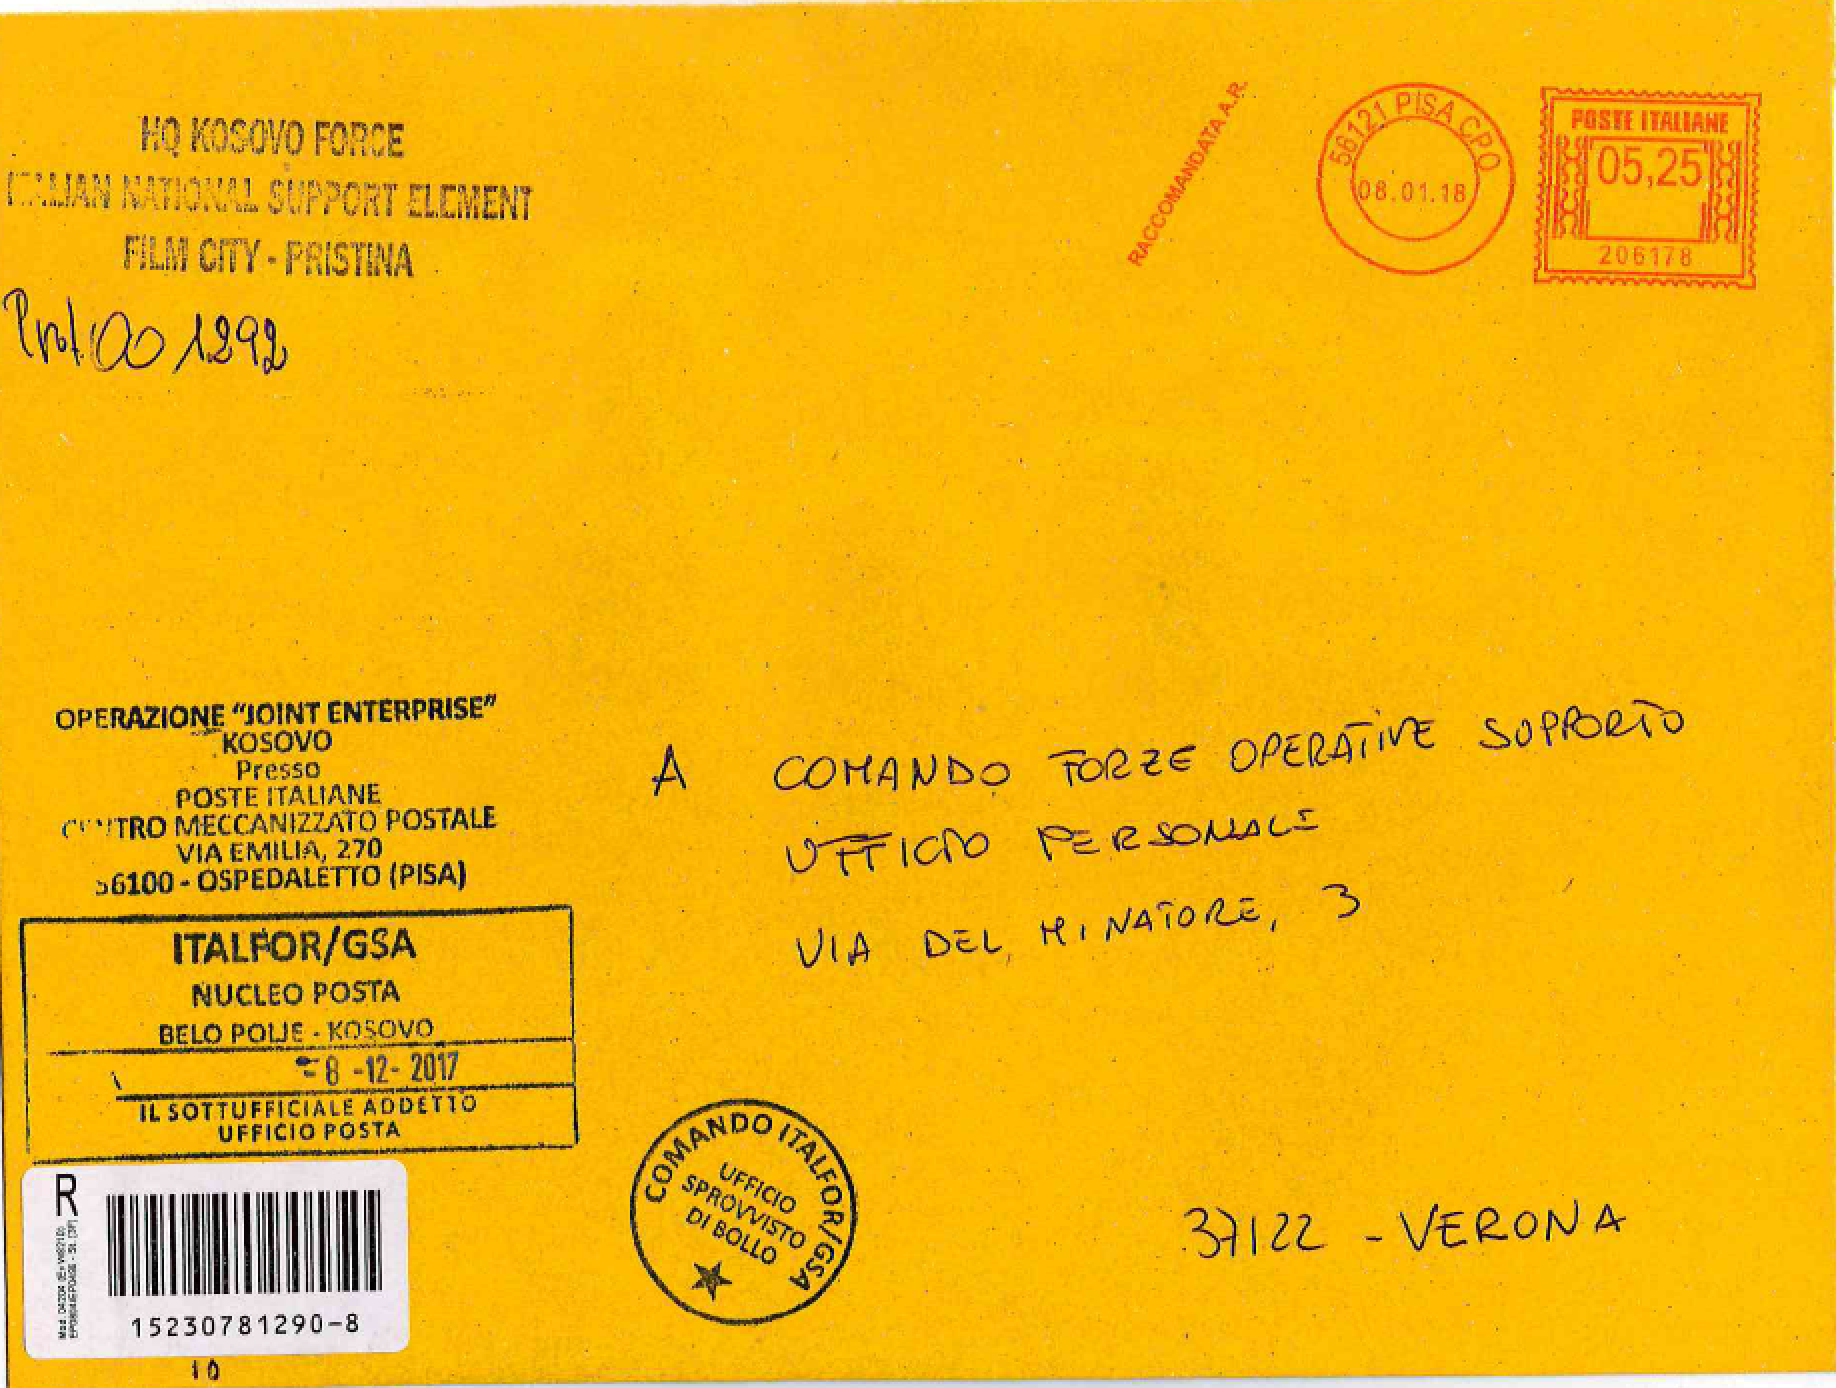 HQ KOSOVO FORCE
ITALIAN NATIONAL SUPPORT ELEMENT
FILM CITY - PRISTINA
Prot. 00 1292
RACCOMANDATA A.R.
56121 PISA CPO
08.01.18
POSTE ITALIANE
05,25
206178
OPERAZIONE “JOINT ENTERPRISE”
KOSOVO
Presso
POSTE ITALIANE
CENTRO MECCANIZZATO POSTALE
VIA EMILIA, 270
56100 - OSPEDALETTO (PISA)
ITALFOR/GSA
NUCLEO POSTA
BELO POLJE - KOSOVO
- 8 -12- 2017
IL SOTTUFFICIALE ADDETTO
UFFICIO POSTA
R
15230781290-8
10
COMANDO ITALFOR/GSA
UFFICIO
SPROVVISTO
DI BOLLO
A COMANDO FORZE OPERATIVE SUPPORTO
UFFICIO PERSONALE
VIA DEL MINATORE, 3
37122 - VERONA